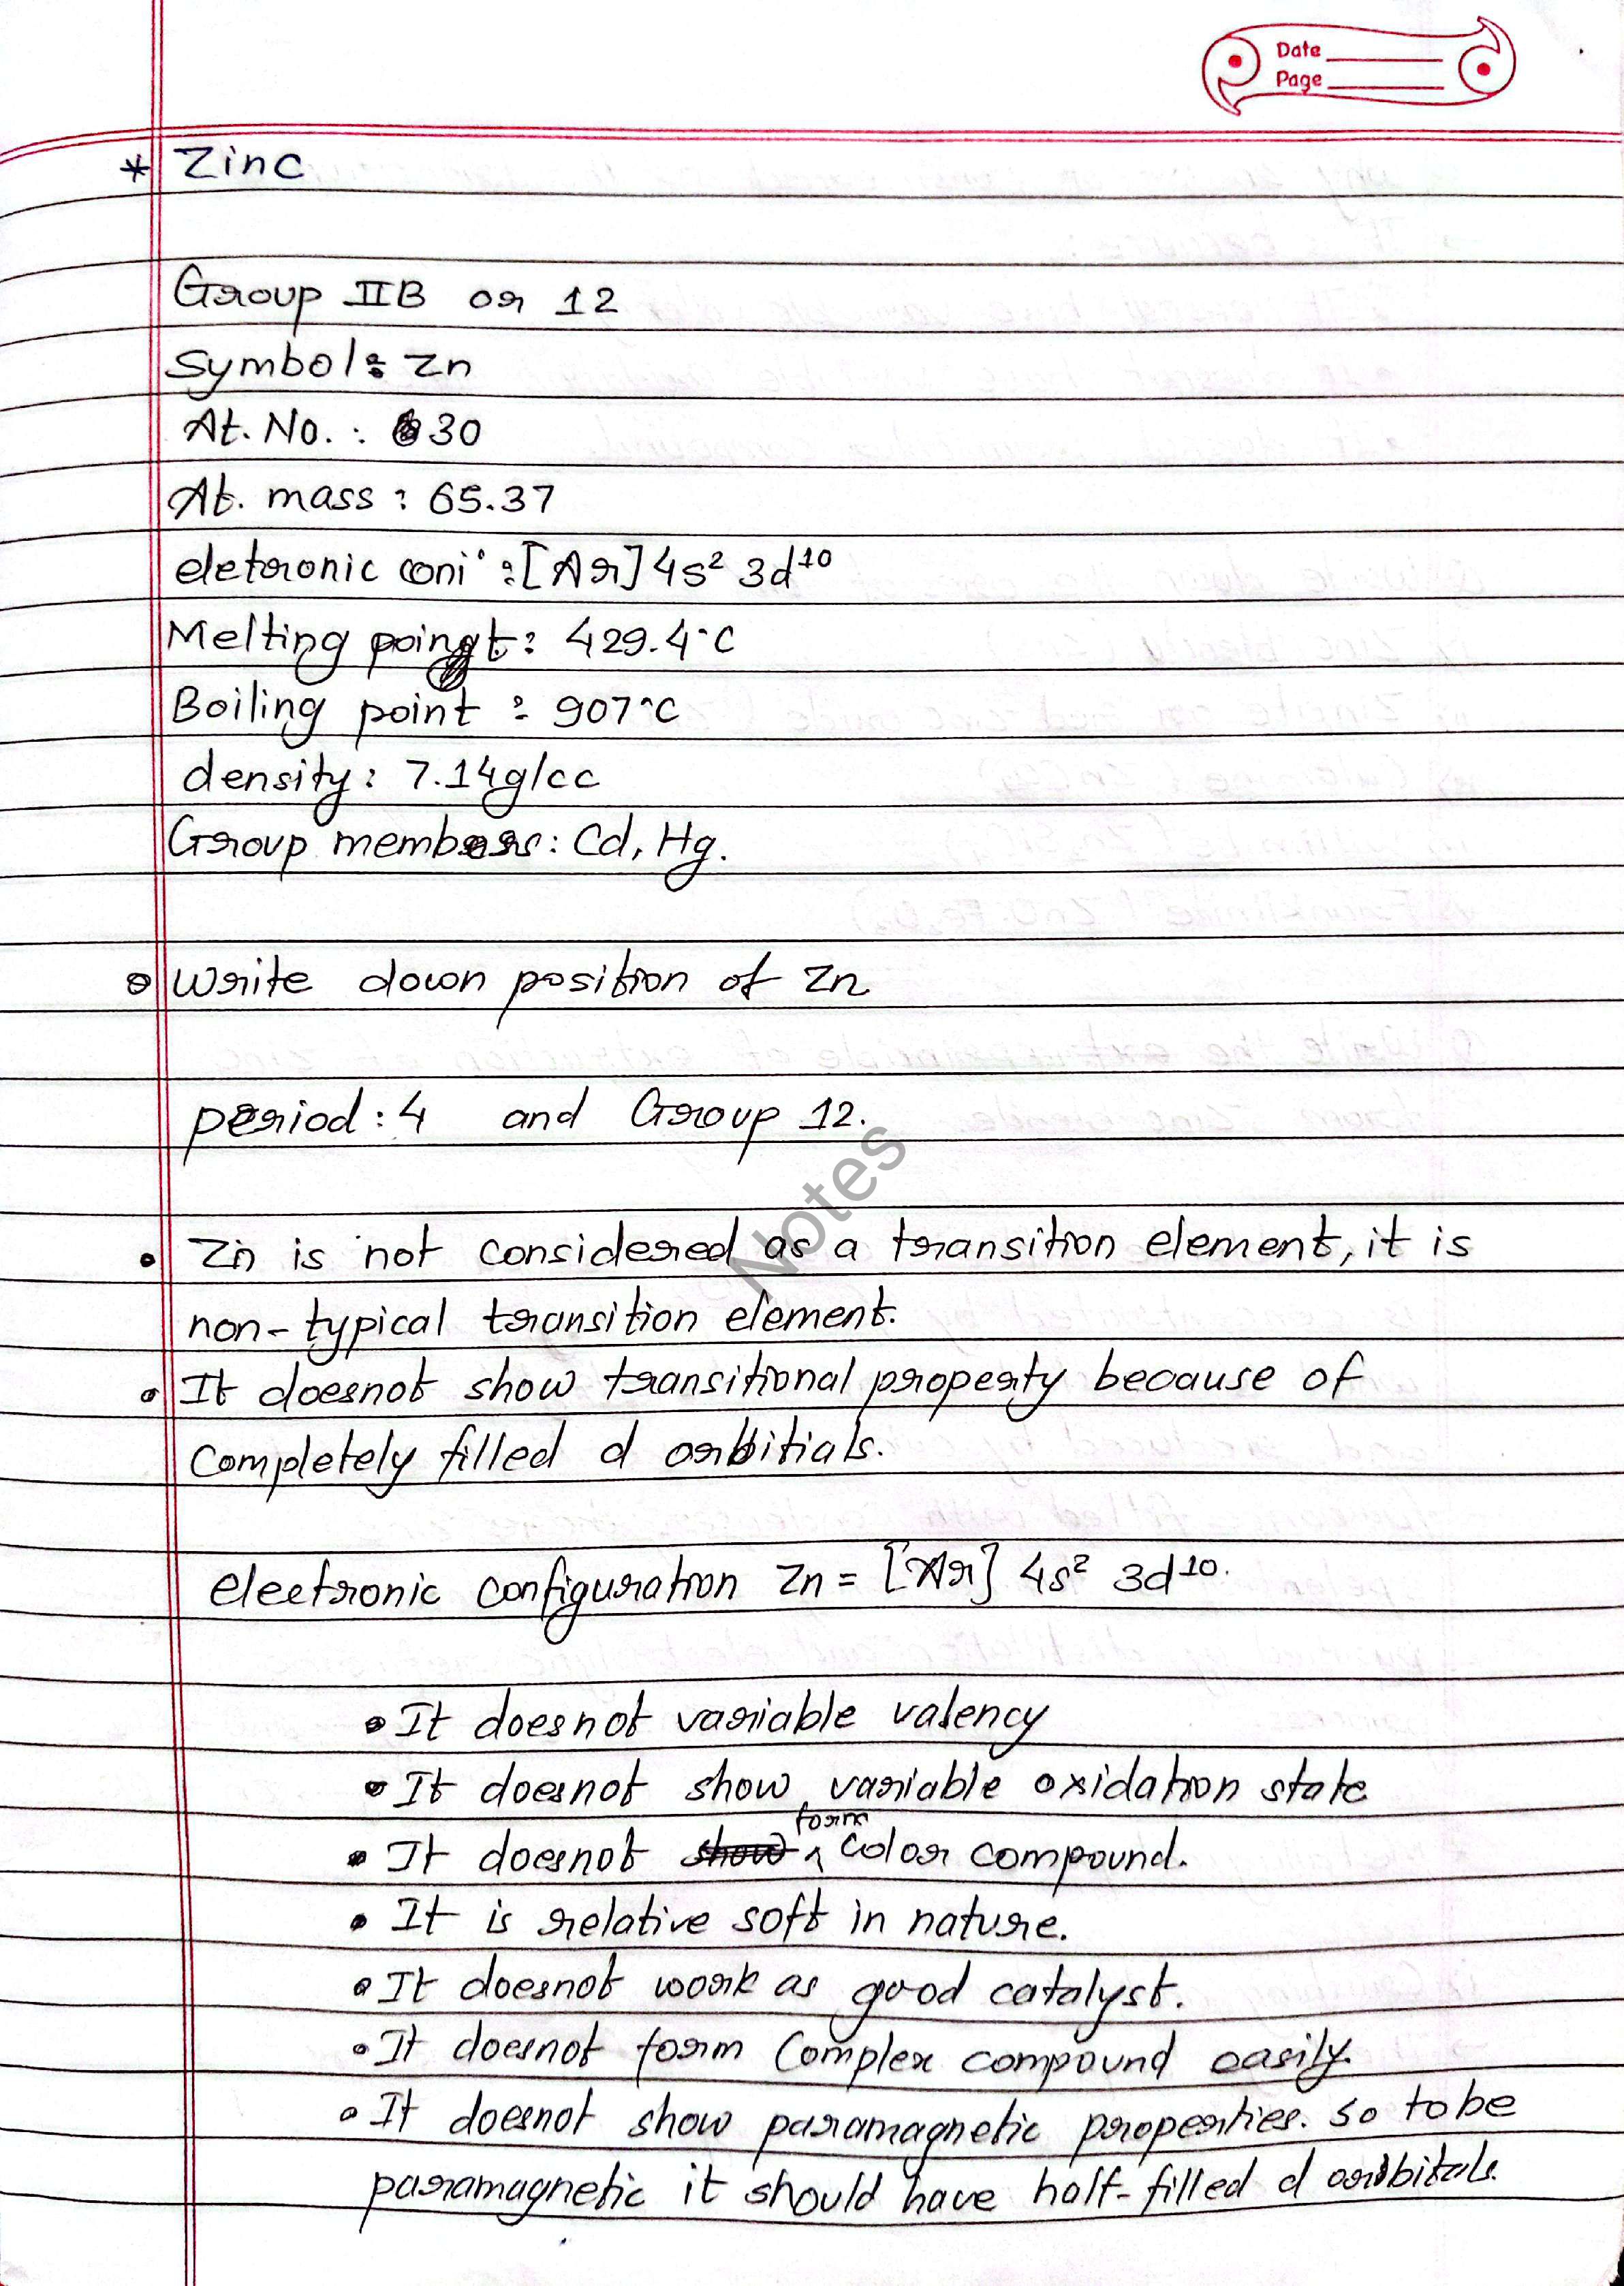 Date
Page
* Zinc
Group IIB or 12
Symbol: Zn
At. No. : 30
At. mass : 65.37
eletronic coni :[Ar] 4s² 3d¹⁰
Melting point: 429.4°C
Boiling point : 907°C
density: 7.14g/cc
Group members: Cd, Hg.
Write down position of Zn
period: 4 and Group 12.
• Zn is not considered as a transition element, it is
non-typical transition element.
• It doesnot show transitional property because of
completely filled d orbitials.
electronic configuration Zn = [Ar] 4s² 3d¹⁰.
• It doesnot variable valency
• It doesnot show variable oxidation state
• It doesnot form color compound.
• It is relative soft in nature.
• It doesnot work as good catalyst.
• It doesnot form Complex compound easily.
• It doesnot show paramagnetic properties. so to be
paramagnetic it should have half-filled d orbitals.
Notes